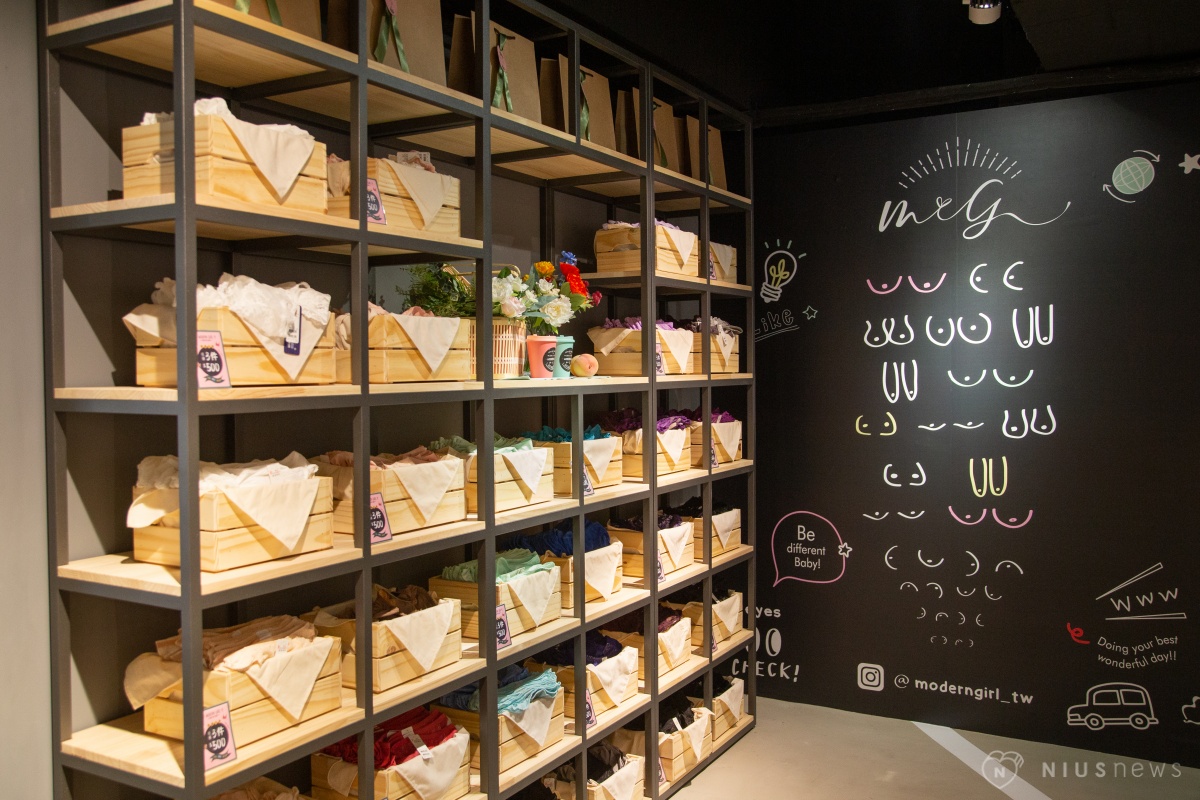 m&G
Like
3件
$500
3件
$500
3件
$500
3件
$500
Be
different
Baby!
eyes
CHECK!
www
Doing your best
wonderful day!!
@moderngirl_tw
N
NIUSnews